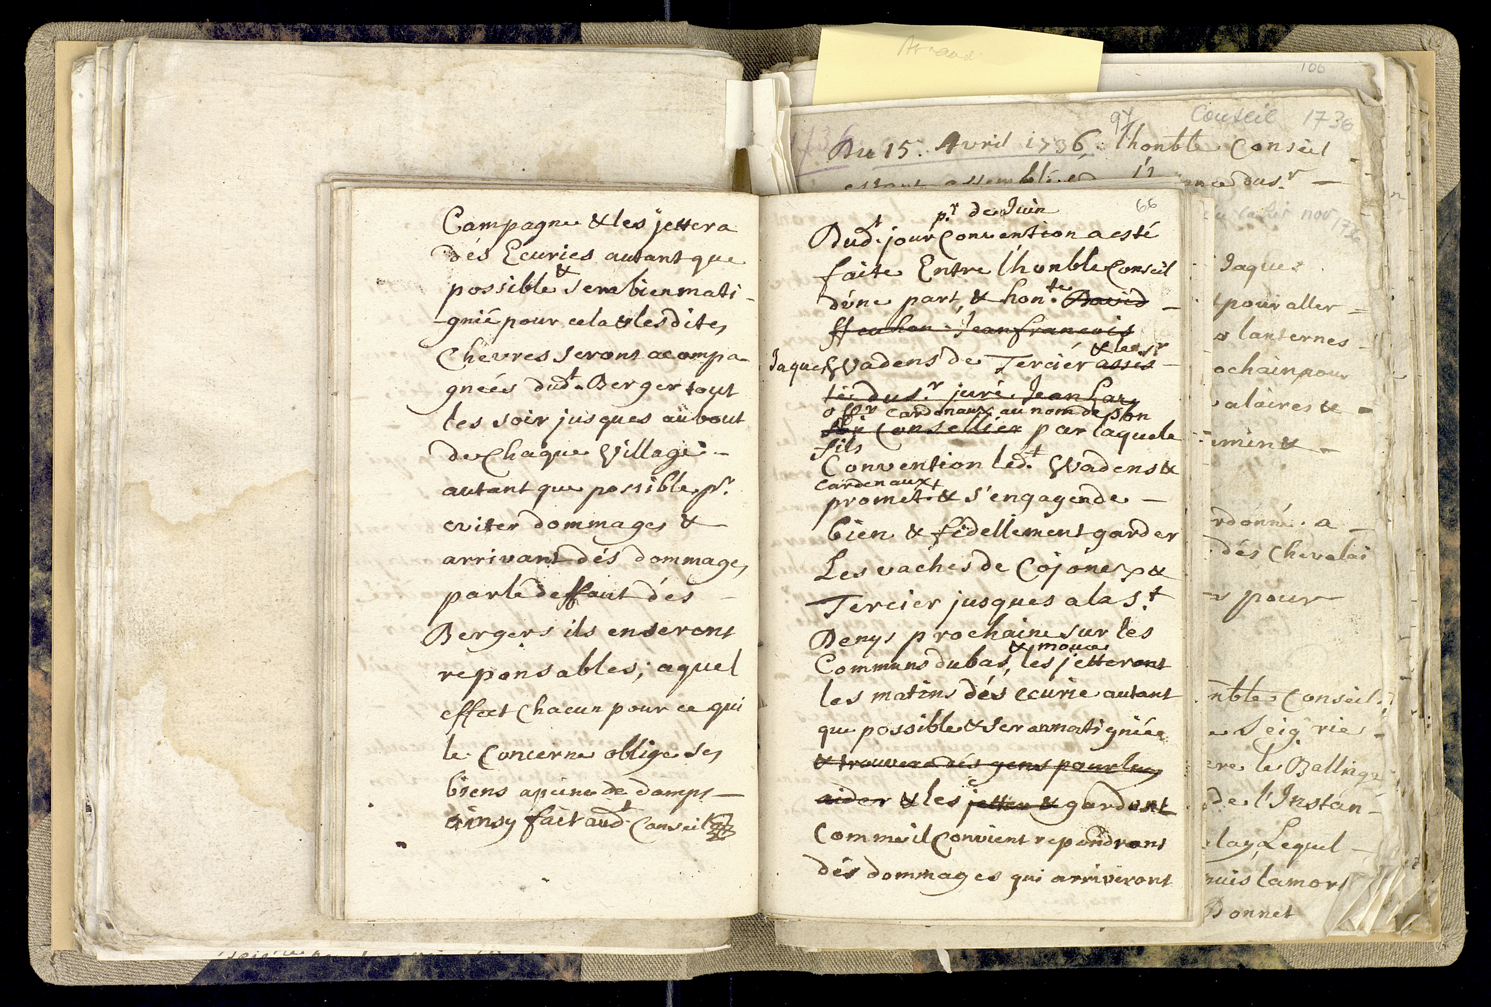 Campagne & les jettera
dés Ecuries autant que
possible & sera bien mati-
gnié pour cela & les dites
Chevres seront acompa
gneés dudt. Berger tout
les soir jusques aü bout
de chaque Village -
autant que possible pr.
eviter dommages &
arrivant dés dommages
par le deffaut dés -
Bergers ils en seront
reponsables; a quel
effect chacun pour ce qui
le concerne oblige ses
biens a peine de damps -
ainsy fait audt Conseil
66
pr de Juin
Dudt. jour Convention a esté
faite Entre l'honble Conseil
d'úne part, & honte. David -
Jean francois
Jaques Wadens de Tercier & le sr assis-
té du sr. juré Jean
offr Cardenaux au nom de son
Conseillier par laquele
fils
Convention ledt. Wadens &
Cardenaux
promet & s'engagende -
bien & fidellement garder
Les vaches de Cojónex &
Tercier jusques a la St.
Denys prochaine sur les
& moua
Communs du bas, les jetteront
les matins dés ecurie autant
que possible & sera matigniée
& trouvera dés gens pour luy
aider & les jetter & gardont
Comme il convient repondront
dés dommages qui arriveront
106
97
Conseil 1736
1736
Du 15. Avril 1736. l'honble Conseil
estant assemblé
nov 1736
Jaques
pour aller =
lanternes -
ochain pour
alaires & -
ordonné. a -
dés Chevalai
pour
nble Conseil.
Seigrie.
ere le Ballinge
de l'Instan-
lay Lequel -
nuis la mort
Bonnet